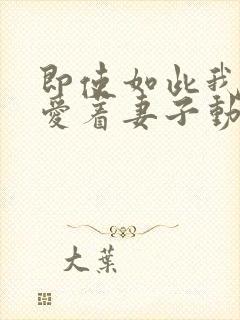 即使如此我
爱着妻子動
大葉